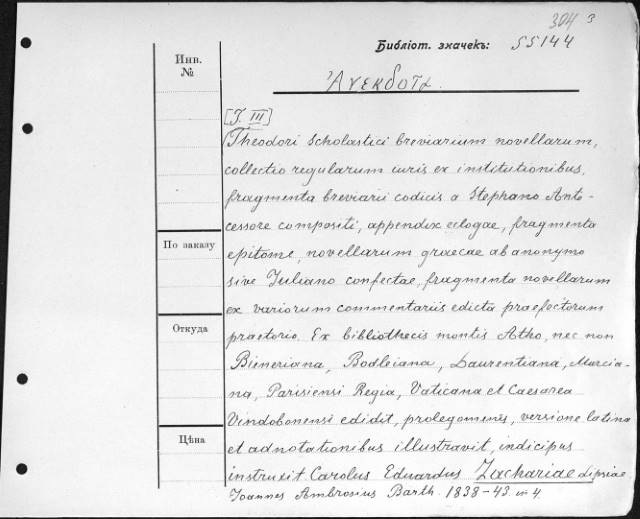 304 3
Библіот. значекъ: 55144
Инв.
№
Ἀνεκδοτα.
[T. III]
Theodori Scholastici breviarium novellarum,
collectio regularum iuris ex institutionibus,
fragmenta breviarii codicis a Stephano Ante-
cessore compositi, appendix eclogae, fragmenta
epitome, novellarum graecae ab anonymo
По заказу
sive Juliano confectae, fragmenta novellarum
ex variorum commentariis edicta praefectorum
Откуда
praetorio. Ex bibliothecis montis Atho, nec non
Bieneriana, Bodleiana, Laurentiana, Murcia-
na, Parisiensi Regia, Vaticana et Caesarea
Vindobonensi edidit, prolegomenes, versione latina
Цѣна
et adnotationibus illustravit, indicipus
instruxit Carolus Eduardus Zachariae Lipsiae
Joannes Ambrosius Barth. 1838-43 in 4.